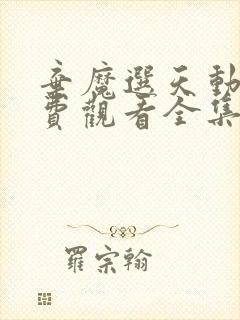 弃魔選天動
費觀看全集
羅宗翰